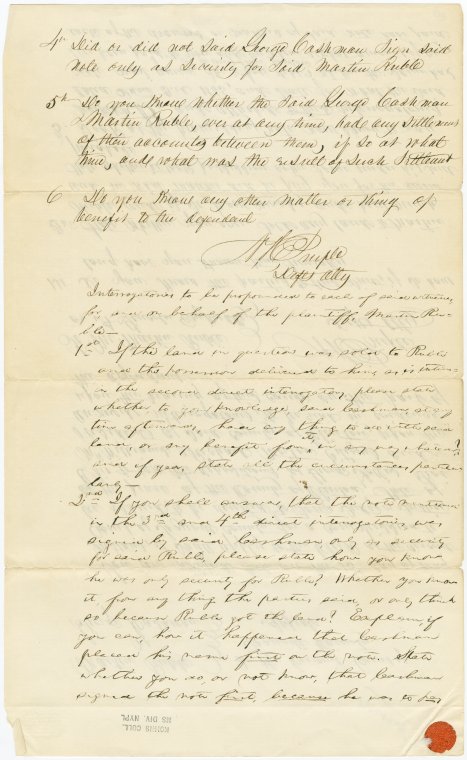 4th Did or did not said George Cashman sign said
note only as Security for said Martin Ruble
5th Do you Know whether the said George Cashman
& Martin Ruble, ever at any time, had any settlement
of their accounts between them, if so at what
time, and what was the result of such settlement
6 Do you Know any other matter or thing of
benefit to the defendant
N H Purple
Defts atty
Interrogatories to be propounded to each of said witnesses
for and on behalf of the plaintiff, Martin Ru-
ble—
1st If the land in question was sold to Ruble
and the possession delivered to him, as is stated
in the second direct interrogatory, please state
whether to your knowledge, said Cashman at any
time afterwards, had any thing to do with said
land, or any benefit from it, in any way whatever?
and if yea, state all the circumstances particu
larly—
2nd If you shall answer, that the note mentioned
in the 3rd and 4th direct interrogatories, was
signed by said Cashman only as security
for said Ruble, please state how you know
he was only security for Ruble? Whether you know
it from any thing the parties said, or only think
so because Ruble got the land? Explain, if
you can, how it happened that Cashman
placed his name first on the note. State
whether you do, or not know, that Cashman
signed the note first, because he was to pay
KOHNS COLL.
MS DIV. NYPL